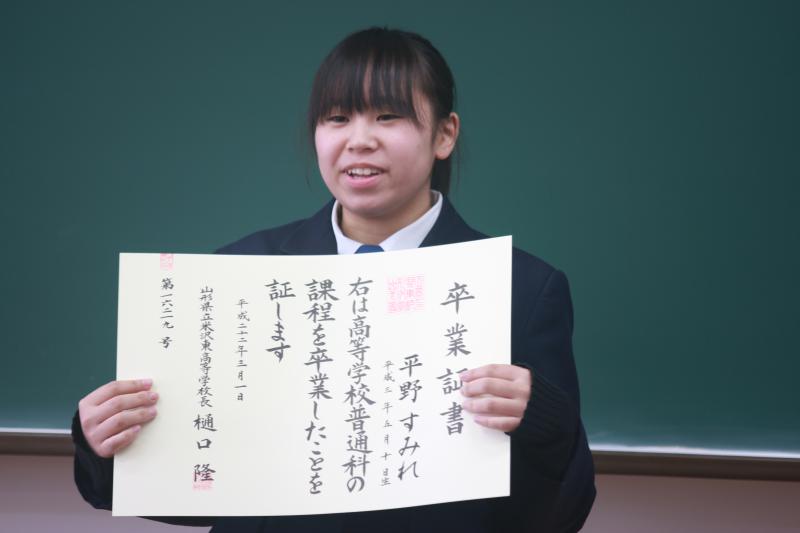 卒業証書
平野すみれ
平成三年五月十日生
右は高等学校普通科の
課程を卒業したことを
証します
平成二十二年三月一日
山形県立米沢東高等学校長 樋口隆
第一六二一九号